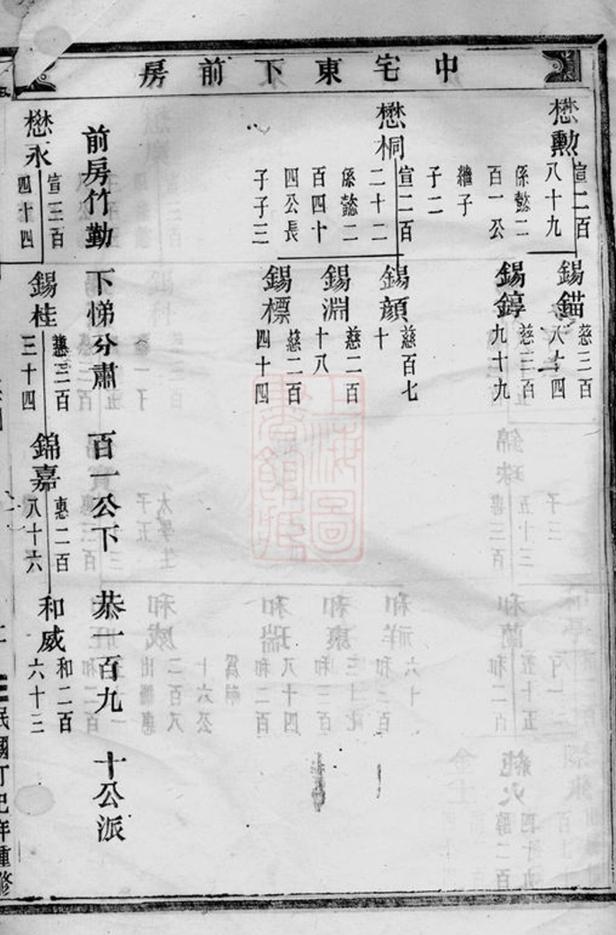 中宅東下前房
懋勲 宣二百八十九
係懿二百一公
繼子
子二
懋桐 宣二百二十二
係懿二百四十四公長子
子三
錫錨 慈三百
錫錞 慈三百九十九
錫顏 慈百七十
錫淵 慈二百十八
錫標 慈二百四十四
前房竹勤下悌分肅百一公下恭一百九十公派
懋永 宣三百四十四
錫桂 慈三百三十四
錦嘉 惠二百八十六
和威 和二百六十三
民國丁巳年重修
上海圖書館藏